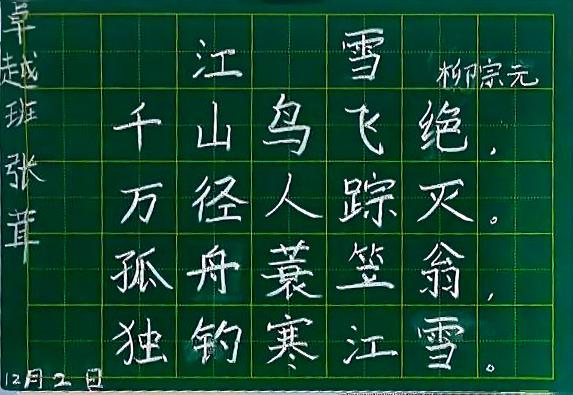 江雪
柳宗元
千山鸟飞绝，
万径人踪灭。
孤舟蓑笠翁，
独钓寒江雪。
卓越班张茸
12月2日